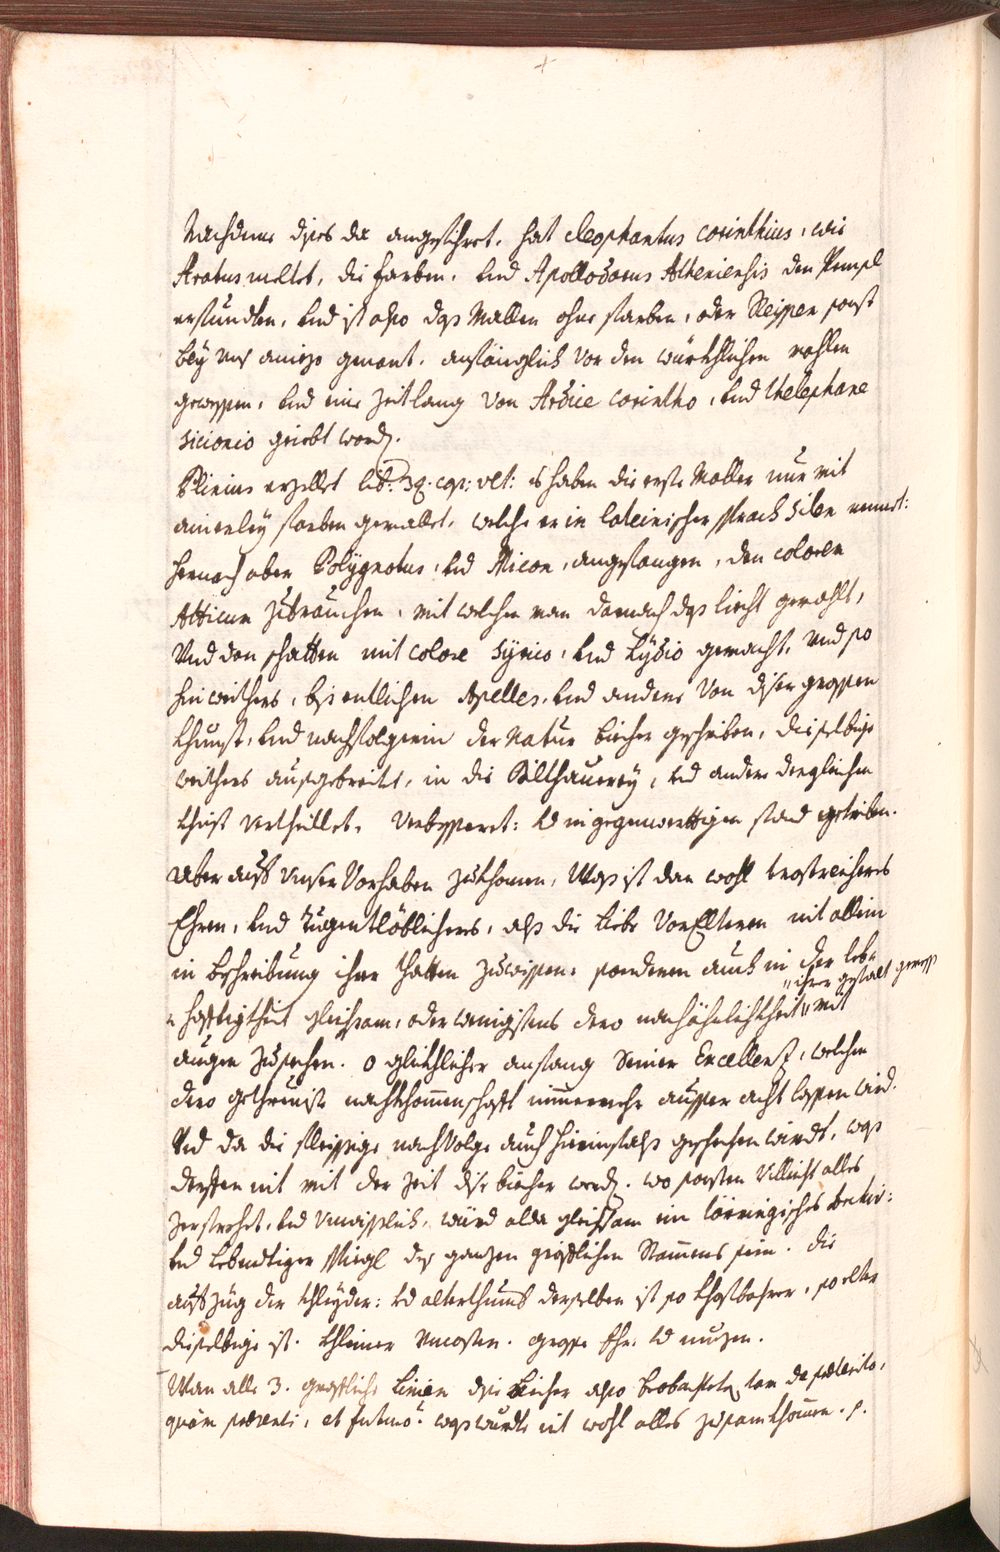 Nachdeme dises da angefihret, hat Cleophantus Corinthius, wie
Aratus meldet, die farben, Und Apollodorus Atheniensis den Pempsl
erfundten, Und ist also das Mallen ohne farben, oder Reissen sonst
bey uns aniezo genant, anfänglich vor den würkhlichen mahlen
gewessen, Und eine Zeitlang von Ardice Corintho, Und Thelephane
Sicionio geiebt word.
Plinius erzellet lib: 38. cap: ult: es haben die erste Maller nur mit
ainerley farben gemallet, welche er in lateinischer sprach Silen nennet:
hernach aber Polygnotus, Und Micon, angefangen, den colorem
Atticum Zubrauchen, mit welchen man darnach das liecht gemahlt,
Und den schatten mit colore Syrico, Und Lydio gemacht, Und so
hin weithers, bis entlichen Apelles, Und andere Von diser grossen
khunst, Und nachfolgerin der Natur biecher geschriben, die selbige
weithers ausgebreitet, in die Billhauerey, Und andere dergleichen
khinst vertheillet, Verbesseret: Und in gegenwerttigen stand getriben.
Aber auf unser Vorhaben zukhomen, Was ist dan wohl trostreichers
Ehren, Und Tugentlöblichers, als die liebe VorElteren nit allein
in beschreibung ihrer thatten Zuwissen, sonderen auch in der leb-
"ihrer gestalt gemess
hafftigkheit gleichsam, oder wenigistens dero nachähnlichkheit" mit
augen Zusechen. O glikhlicher anfang Seiner Excellenz, welchen
dero gethreuiste nachkhommenschafft nimermehr ausser acht lassen wird.
Und da die fleissige nachvolge auch hierinfahls geschechen wirdt, was
derffen nit mit der Zeit dise biecher werd. wo sonsten Villeicht alles
Zerstrehet, Und Unwisslich, wurd alda gleichsam ein
Und lebendtiger spiegl des ganzen gräfflichen Stammens sein. die
aufzüg der khleyder: Und alterthumb derselben ist so khostbahrer, so elter
dieselbige ist. khleiner Uncosten. grosse Ehr. Und nuzen.
Wan alle 3. gräffliche Linien dise biecher also beobachtet tam de praeterito,
quam praesenti, et futuro. was wurdte nit wohl alles zusamkhomen. p.